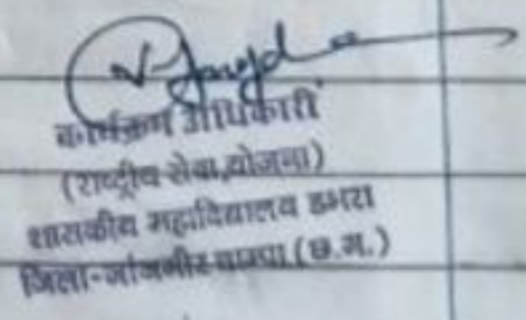 कार्यक्रम अधिकारी
(राष्ट्रीय सेवा योजना)
शासकीय महाविद्यालय डभरा
जिला-जांजगीर चाम्पा (छ.ग.)